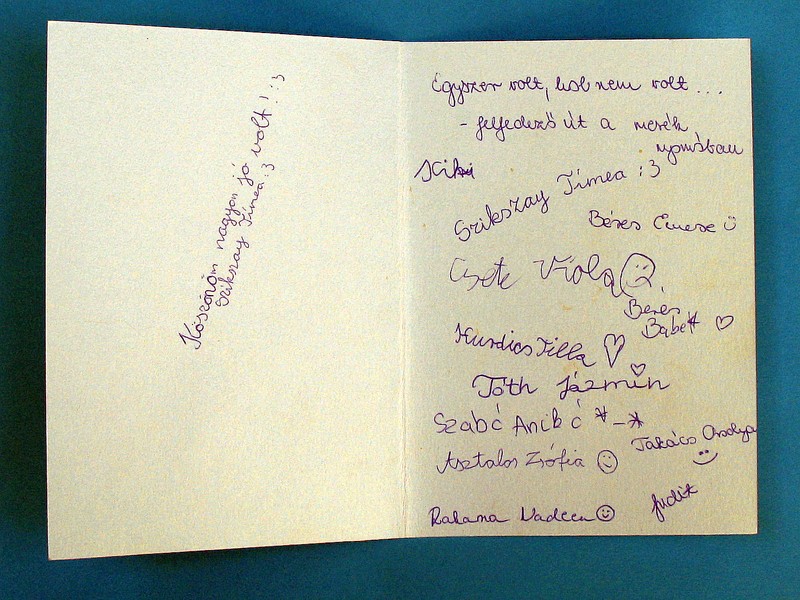 Köszönöm nagyon jó volt! :3
Szikszay Tímea :3
Egyszer volt, hol nem volt...
- felfedező út a mesék
nyomában
Kiki
Szikszay Tímea :3
Béres Emese
Csete Viola
Béres
Babett
Tilla
Tóth Jázmin
Szabó Anikó *-*
Takács Orsolya
Asztalos Zsófia
Judit
Nadeen